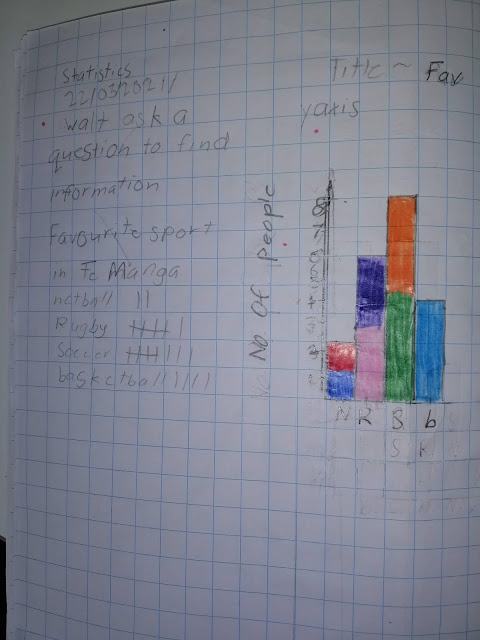 Statistics
22/03/2021/
walt ask a
question to find
information
Favourite sport
in Te Manga
netball ||
Rugby 卌 |
Soccer 卌 |||
basketball ||||
Title ~ Fav
yaxis
No Of people
N R S b
S